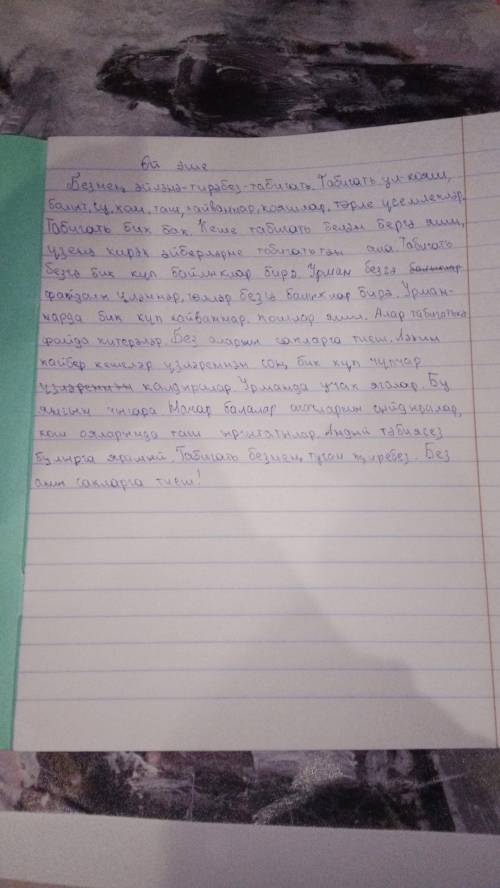 Өй эше
Безнең әйләнә-тирәбез-табигать. Табигать ул-кояш,
балыт, су, ком, таш, хайваннар, кошлар, төрле үсемлекләр.
Табигать бик бай. Кеше табигать белән бергә яши,
үзенә кирәк әйберләрне табигатьтән ала. Табигать
безгә бик күп байлыклар бирә. Урман безгә
файдалы үләннәр, гөлләр безгә балыклар бирә. Урман-
нарда бик күп хайваннар, кошлар яши. Алар табигатькә
файда китерәләр. Без аларны сакларга тиеш. Ләкин
кайбер кешеләр үзләреннән соң бик күп чүпләр
үзләреннән калдыралар. Урманда учак ягалар. Бу
янгын чыгара. Начар балалар агачларны сындыралар,
кош ояларында таш ыргыталар. Андый тәбиясез
булырга ярамый. Табигать безнең туган җиребез. Без
аны сакларга тиеш!